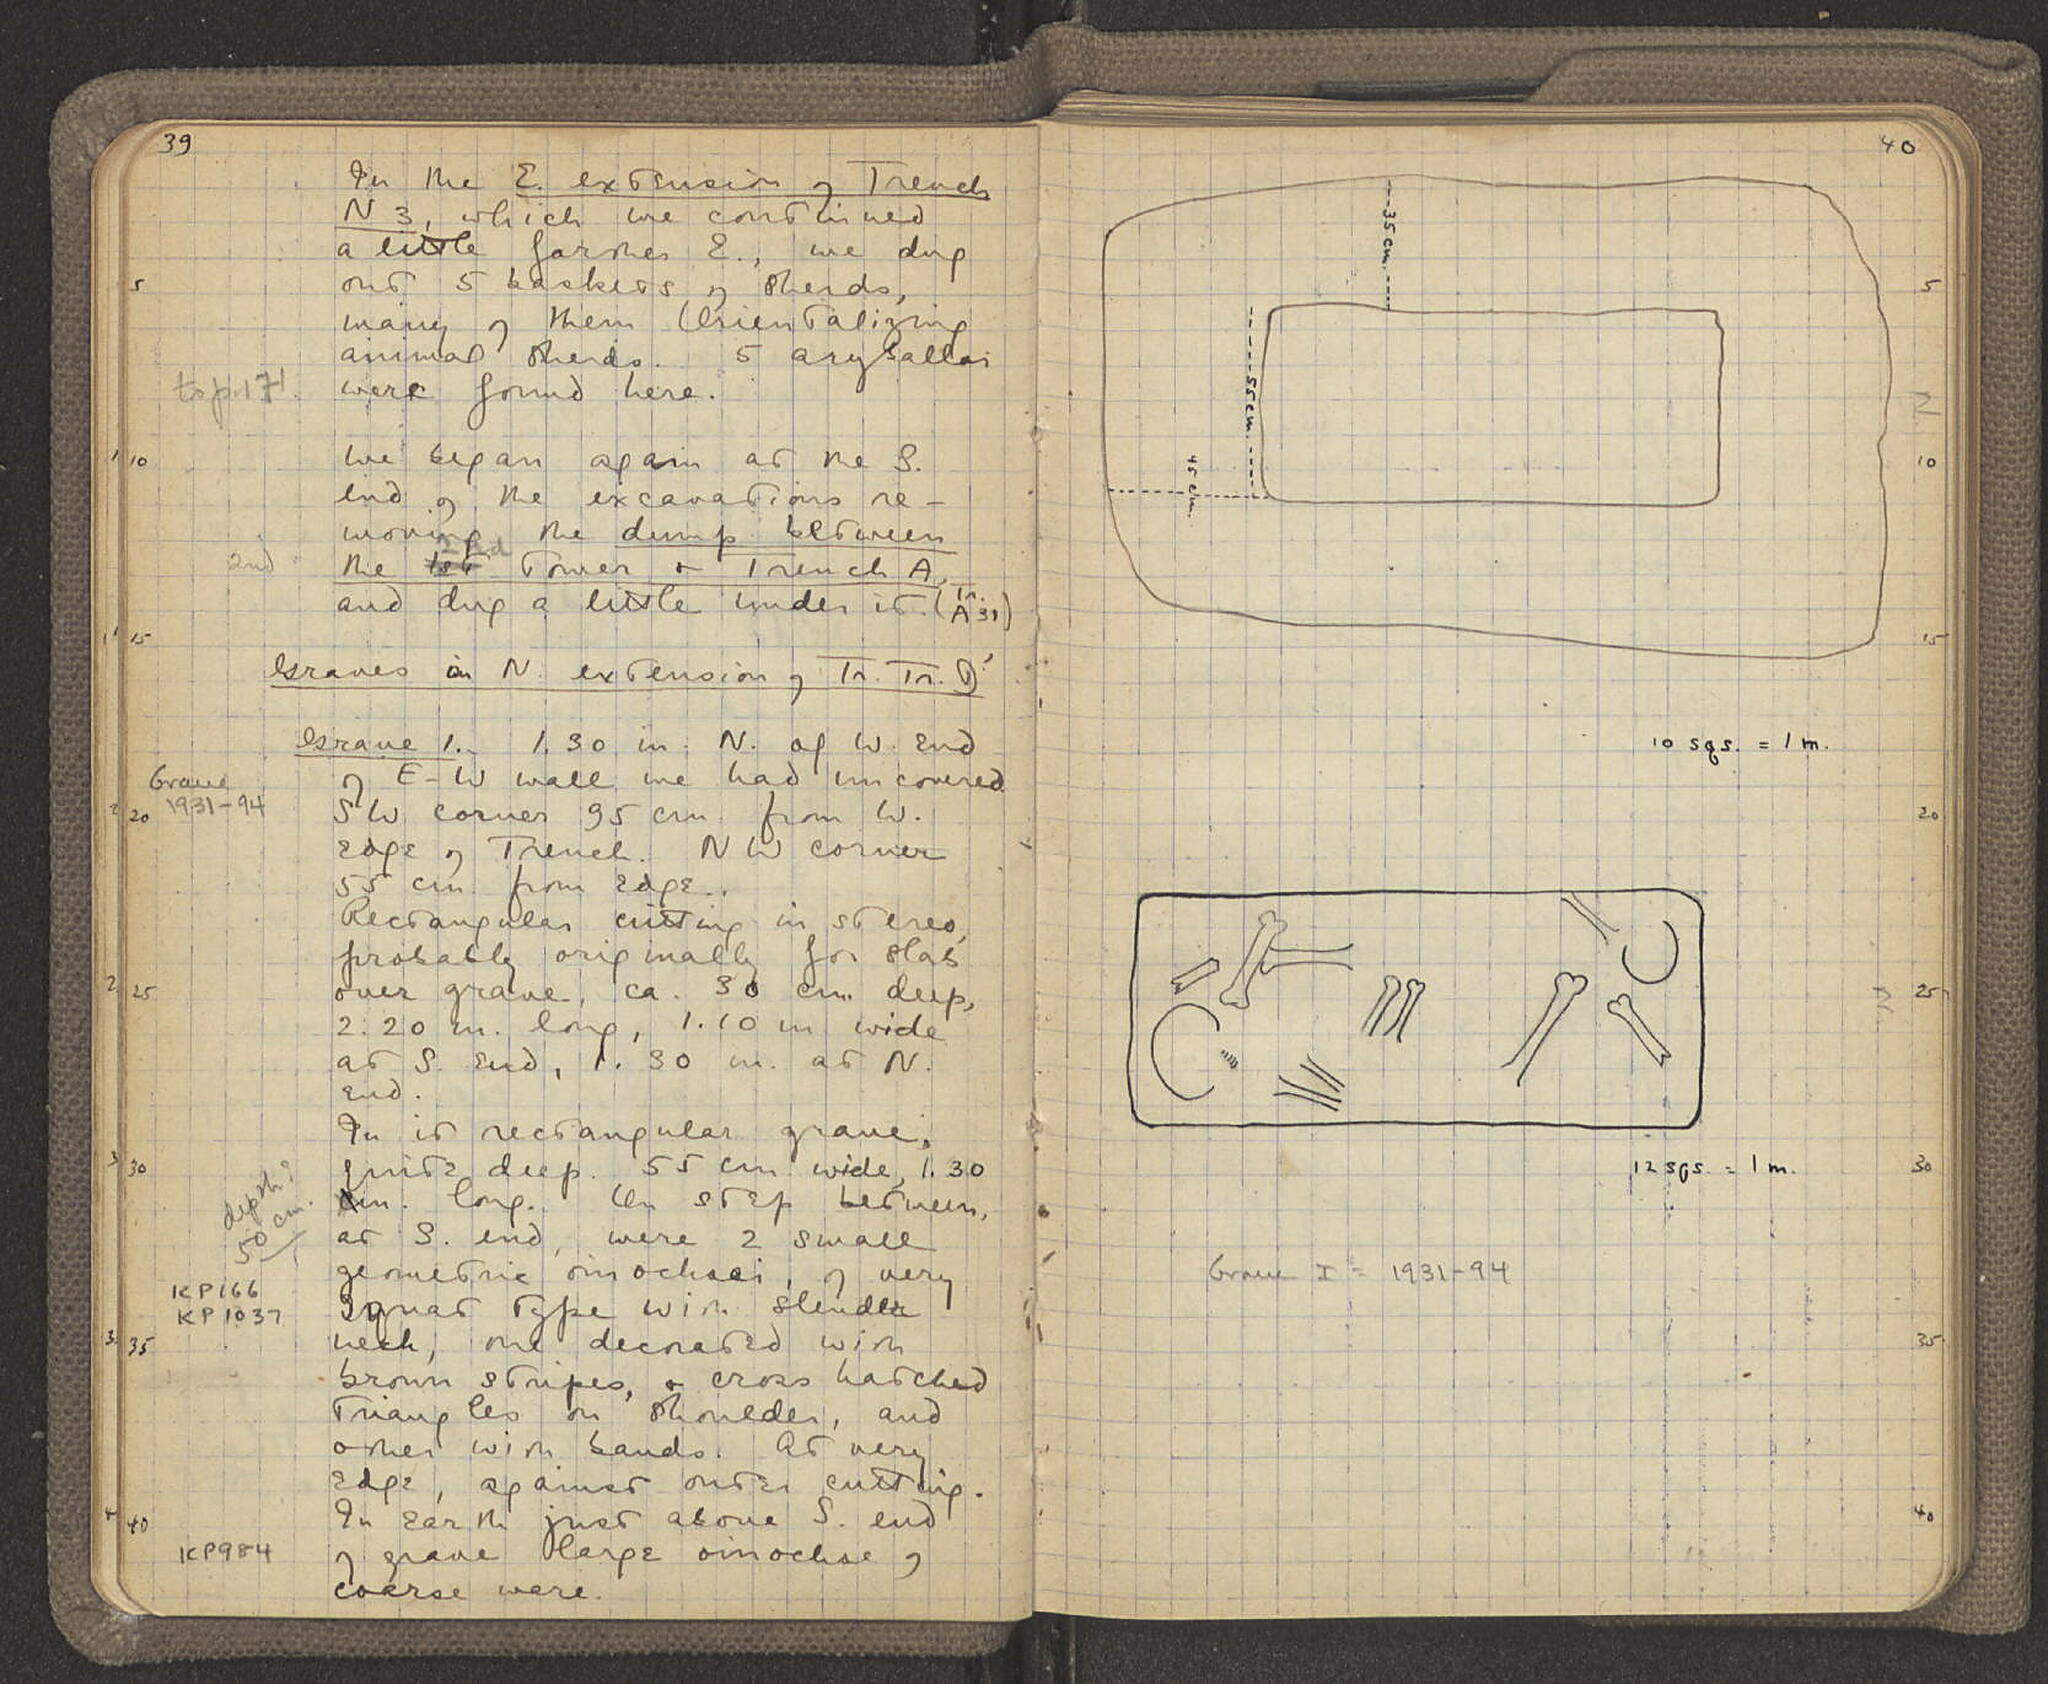 39
In the E. extension of Trench
N 3, which we continued
a little farther E., we dug
5
out 5 baskets of sherds,
many of them Orientalizing
animal sherds. 5 aryballoi
to p. 171.
were found here.
10
We began again at the S.
end of the excavations re-
moving the dump between
2nd
the 1st 2nd Tower + Trench A,
and dug a little under it. (Tr. A 31)
15
Graves in N. extension of Tr. Tr. D'
Grave 1. 1.30 m. N. of W. end
of E-W wall we had uncovered.
Grave
1931-94
20
SW corner 95 cm. from W.
edge of Trench. NW corner
55 cm. from edge.
Rectangular cutting in stereo,
probably originally for slab
25
over grave, ca. 30 cm. deep,
2.20 m. long, 1.10 m wide
at S. end, 1.30 m. at N.
end.
In it rectangular grave,
30
quite deep. 55 cm. wide, 1.30
depth?
50 cm.
m. long. On step between,
at S. end, were 2 small
geometric oinochoai, of very
KP166
KP1037
squat type with slender
35
neck, one decorated with
brown stripes, + cross hatched
triangles on shoulder, and
other with bands. At very
edge, against outer cutting.
40
In earth just above S. end
KP984
of grave large oinochoe of
coarse ware.
40
35 cm.
5
55 cm.
10
45 cm.
15
10 sqs. = 1 m.
20
25
12 sqs. = 1 m.
30
Grave I = 1931-94
35
40